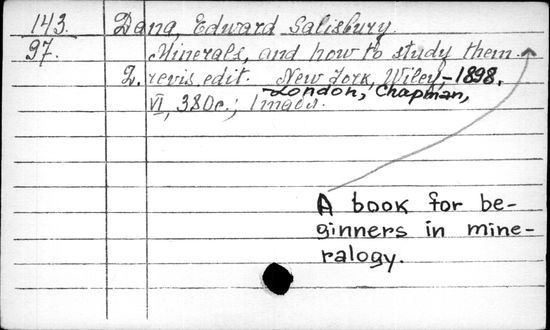 143. Dana, Edward Salisbury.
97. Minerals, and how to study them.
2. revis. edit. New York, Wiley, -1898.
London, Chapman,
VI, 380c.;
A book for be-
ginners in mine-
ralogy.